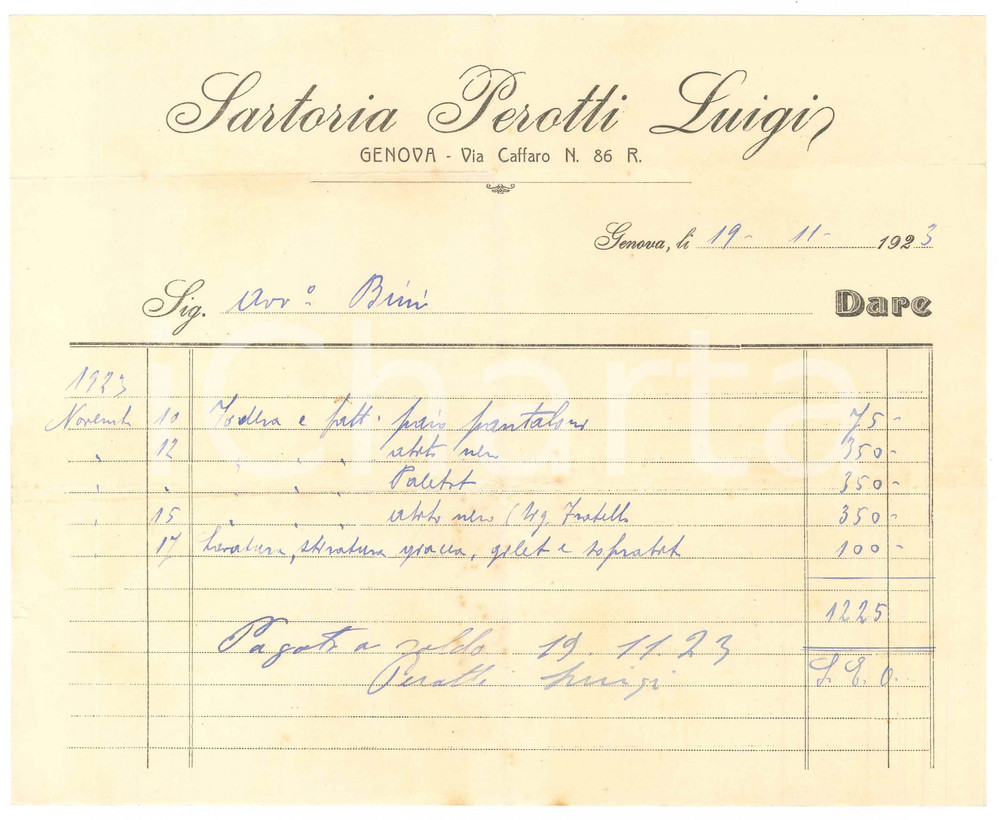 Sartoria Perotti Luigi
GENOVA - Via Caffaro N. 86 R.
Genova, li 19- 11- 1923
Sig. Avv.º Bini Dare
1923
Novemb 10 Fodera e fatt. paio pantaloni 75-
" 12 " " " abito nero 350-
" " " " " Paletot 350-
" 15 " " " abito nero (Sig. Fratello 350-
" 17 Lavatura, stiratura giacca, gilet e soprabit 100-
1225
Pagato a saldo 19. 11. 23
S. E. O.
Perotti Luigi
iCharta